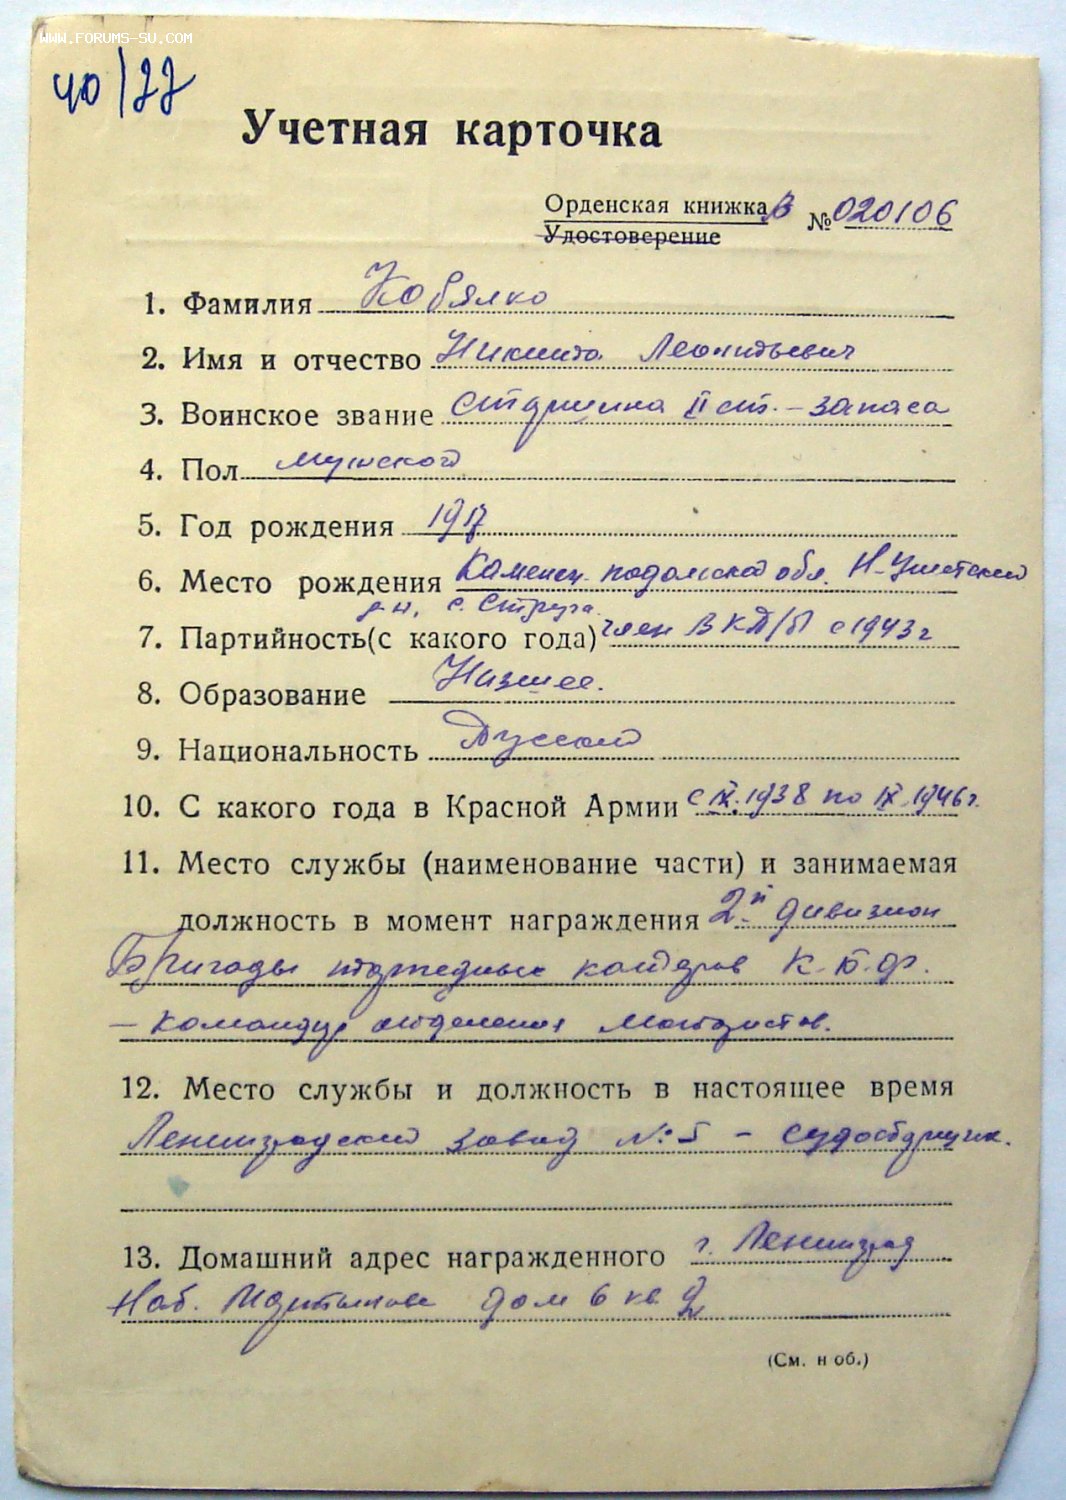 WWW.FORUMS-SU.COM
40/22
Учетная карточка
Орденская книжка В № 020106
Удостоверение
1. Фамилия Кобялко
2. Имя и отчество Никита Леонтьевич
3. Воинское звание старшина II ст. - запаса
4. Пол мужской
5. Год рождения 1917
6. Место рождения Каменец-подольской обл. Н-Ушитский
р-н, с. Струга.
7. Партийность (с какого года) член ВКП/б/ с 1943 г
8. Образование Низшее.
9. Национальность Русский
10. С какого года в Красной Армии с IX.1938 по IX.1946 г.
11. Место службы (наименование части) и занимаемая
должность в момент награждения 2й дивизион
Бригады торпедных катеров К.Б.Ф.
- командир отделения мотористов.
12. Место службы и должность в настоящее время
Ленинградский завод №5 - судосборщик.
13. Домашний адрес награжденного г. Ленинград
Наб. Мартынова дом 6 кв.
(См. н об.)